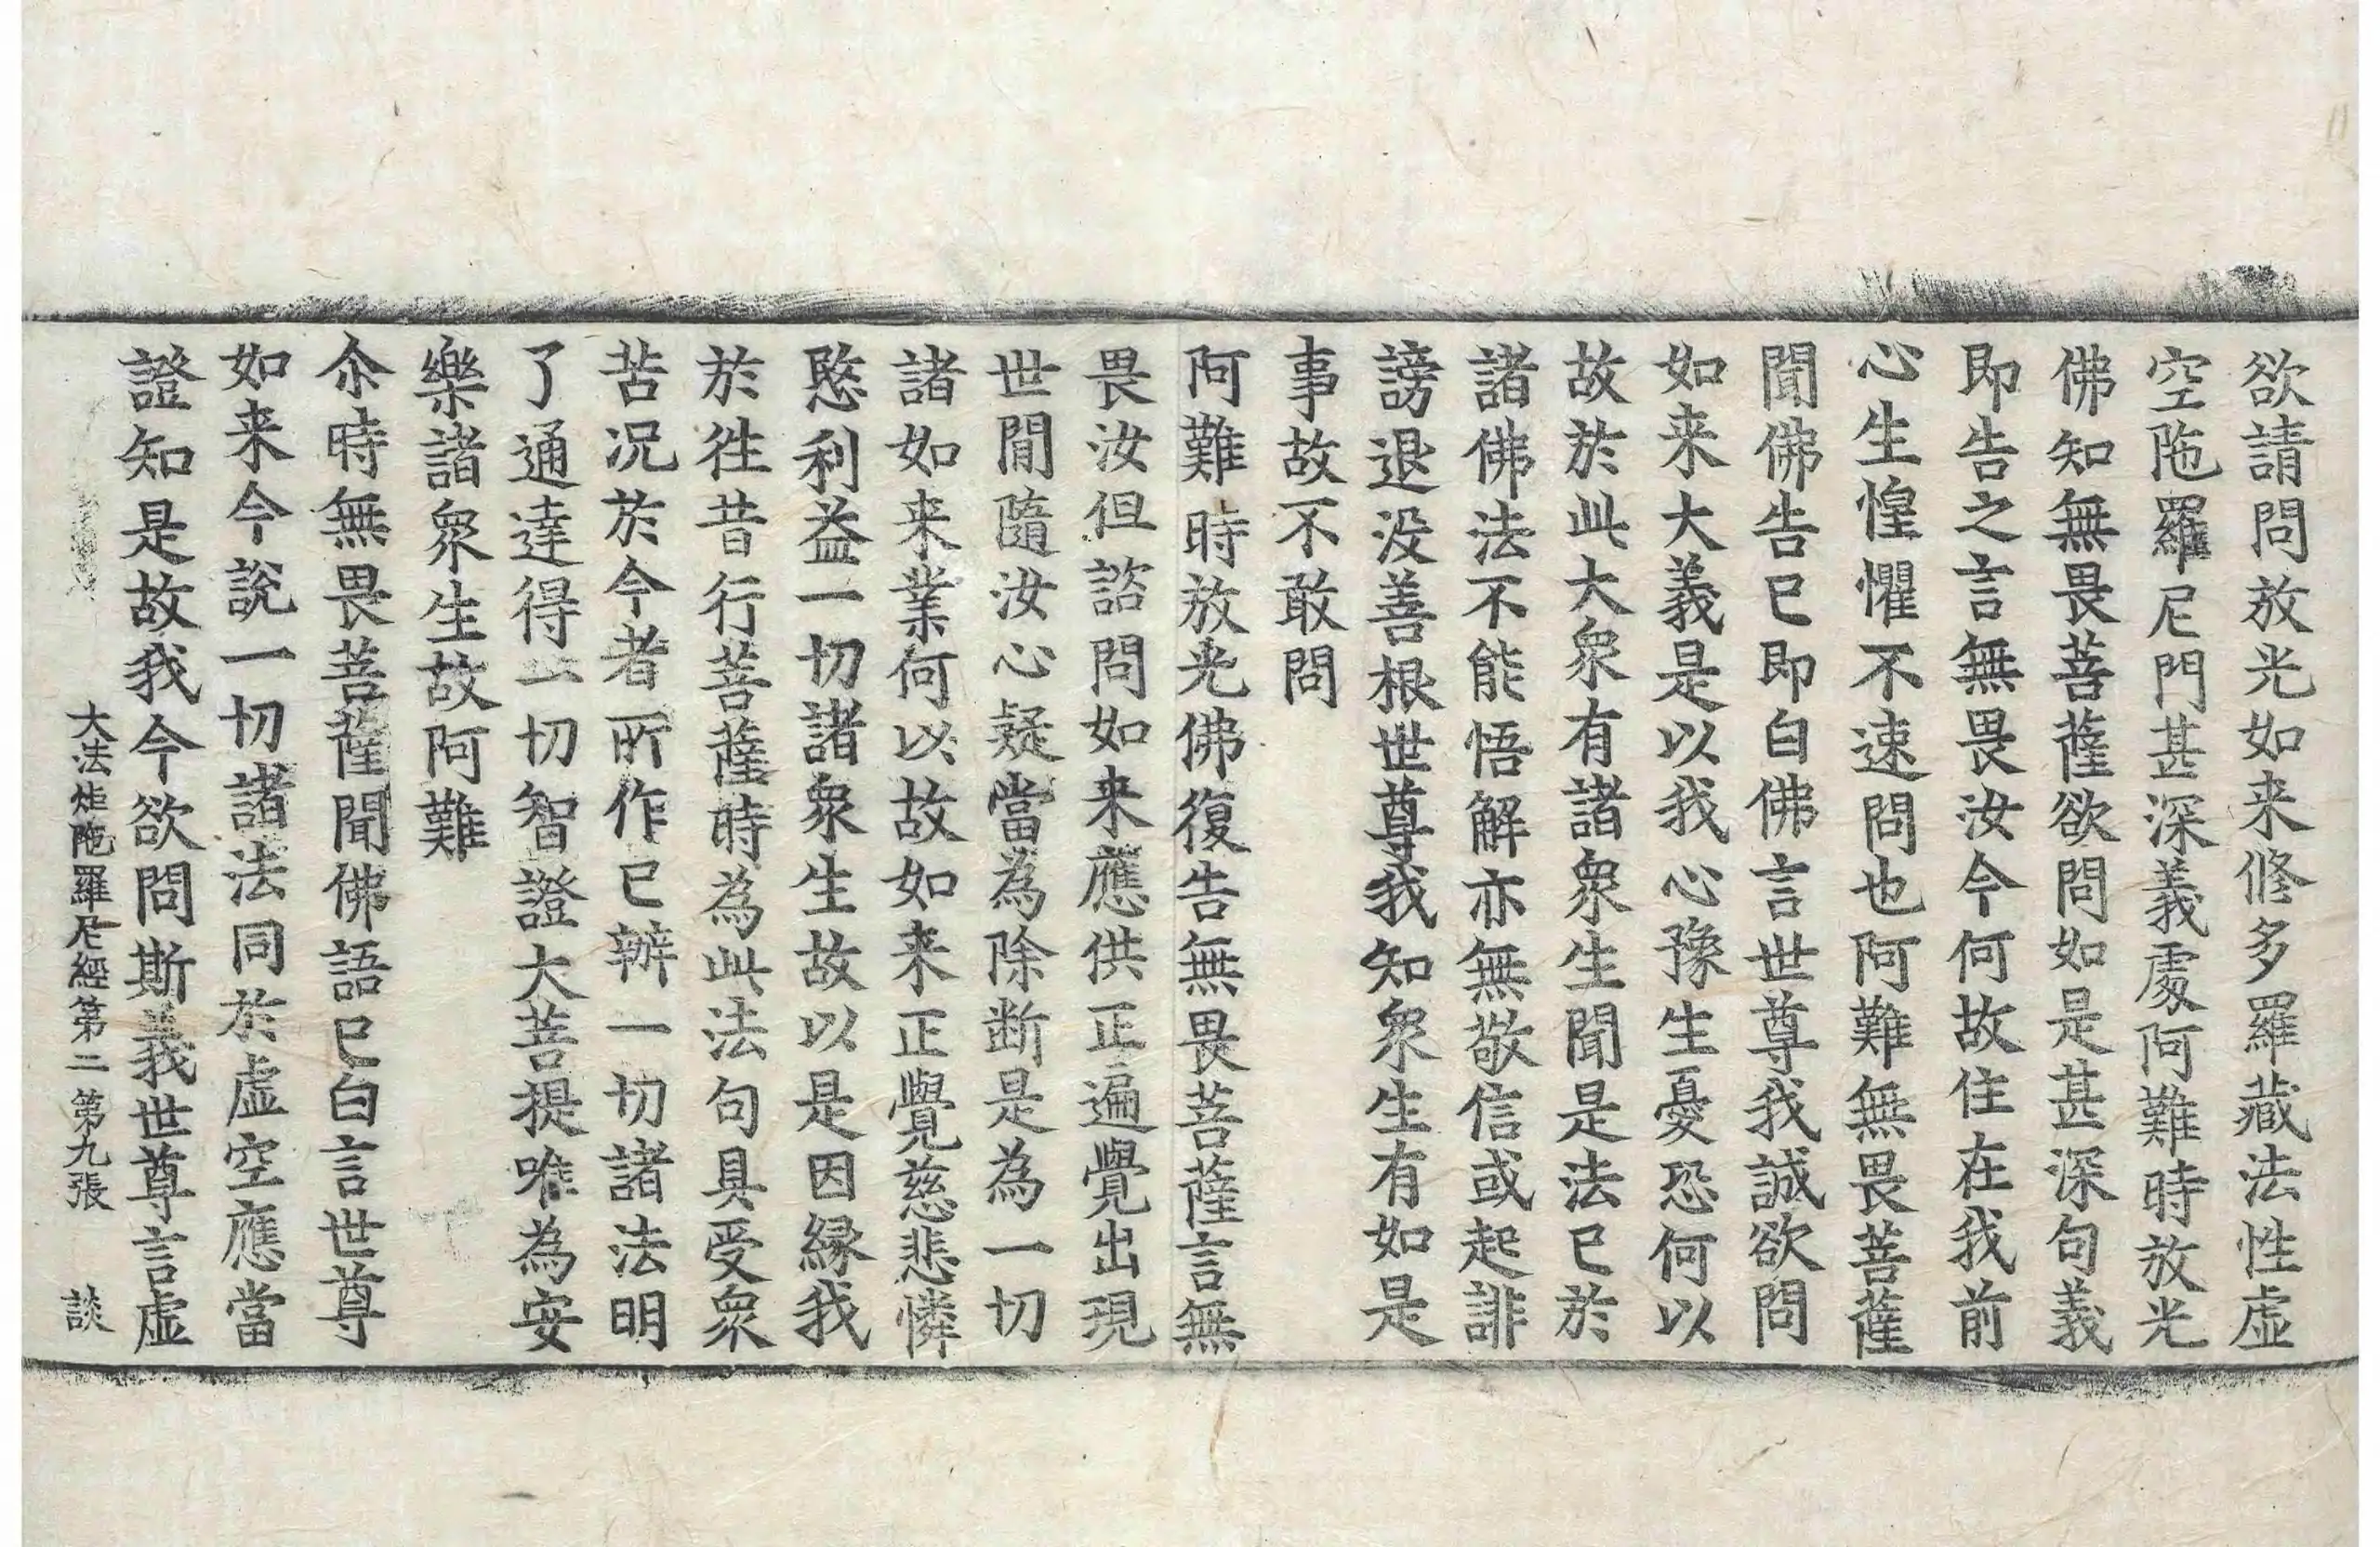 欲請問放光如来修多羅藏法性虛
空陁羅尼門甚深義處阿難時放光
佛知無畏菩薩欲問如是甚深句義
即告之言無畏汝今何故住在我前
心生惶懼不速問也阿難無畏菩薩
聞佛告已即白佛言世尊我誠欲問
如来大義是以我心豫生憂恐何以
故於此大衆有諸衆生聞是法已於
諸佛法不能悟解亦無敬信或起誹
謗退没善根世尊我知衆生有如是
事故不敢問
阿難時放光佛復告無畏菩薩言無
畏汝但諮問如来應供正遍覺出現
世間隨汝心疑當為除断是為一切
諸如来業何以故如来正覺慈悲憐
愍利益一切諸衆生故以是因縁我
於往昔行菩薩時為此法句具受衆
苦况於今者所作已辦一切諸法明
了通達得一切智證大菩提唯為安
樂諸衆生故阿難
尒時無畏菩薩聞佛語已白言世尊
如来今說一切諸法同於虛空應當
證知是故我今欲問斯義世尊言虛
大法炬陁羅尼經第二 第九張 談